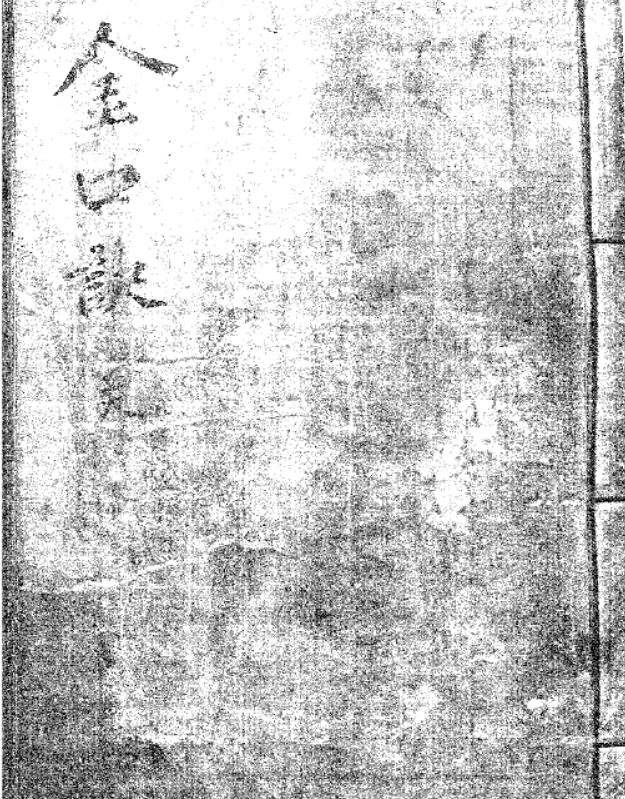 金口訣